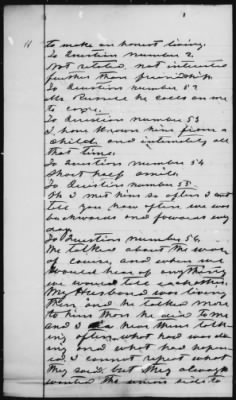 to make an honest living.
To Question number 2.
Not related, not interested
further than friendship.
To Question number 52
Mr. Russell he calls on me
to
To Question number 53
I have known him from a
child, and intimately all
that time.
To Question number 54
Short half mile.
To Question number 55.
Oh I met him so often I can't
tell you how often he was
backwards and forwards every
day.
To Question number 56.
He talked about the war
of course, and when we
would hear of anything
we would tell each other.
My Husband was living
then, and he talked more
to him than he did to me
and I hear them talk
ing often, what had was do
ing and what had happen
ed, I cannot repeat what
they said, but they always
wanted the union side to